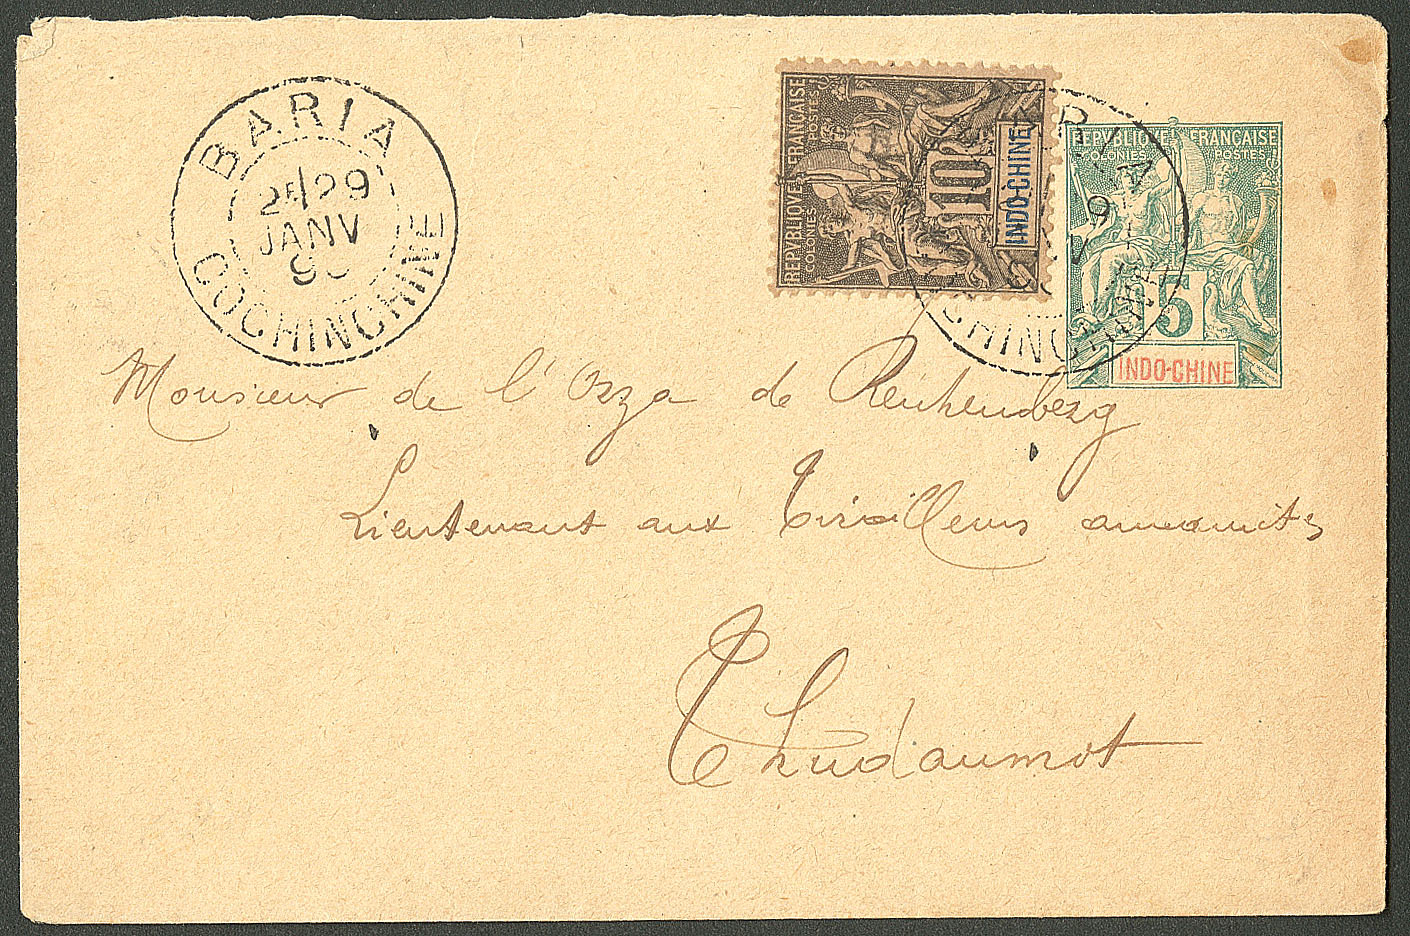 BARIA
2E/29
JANV
9
COCHINCHINE
REPVBLIQVE FRANÇAISE
COLONIES POSTES
10
INDO-CHINE
REPVBLIQVE FRANÇAISE
COLONIES POSTES
5
INDO-CHINE
ARIA
9
V
CHINCHINE
Monsieur de l'Orza de Reichenberg
Lieutenant aux Tirailleurs annamites
Thudaumot